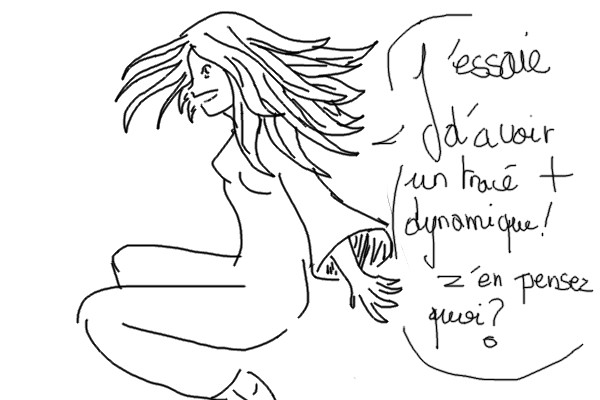 J'essaie
d'avoir
un tracé +
dynamique!
z'en pensez
quoi?